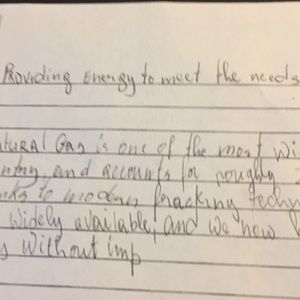 Providing Energy to meet the needs
atural Gas is one of the most wi
and accounts for roughly
nks to modern fracking techn
widely available, and we now
s without imp